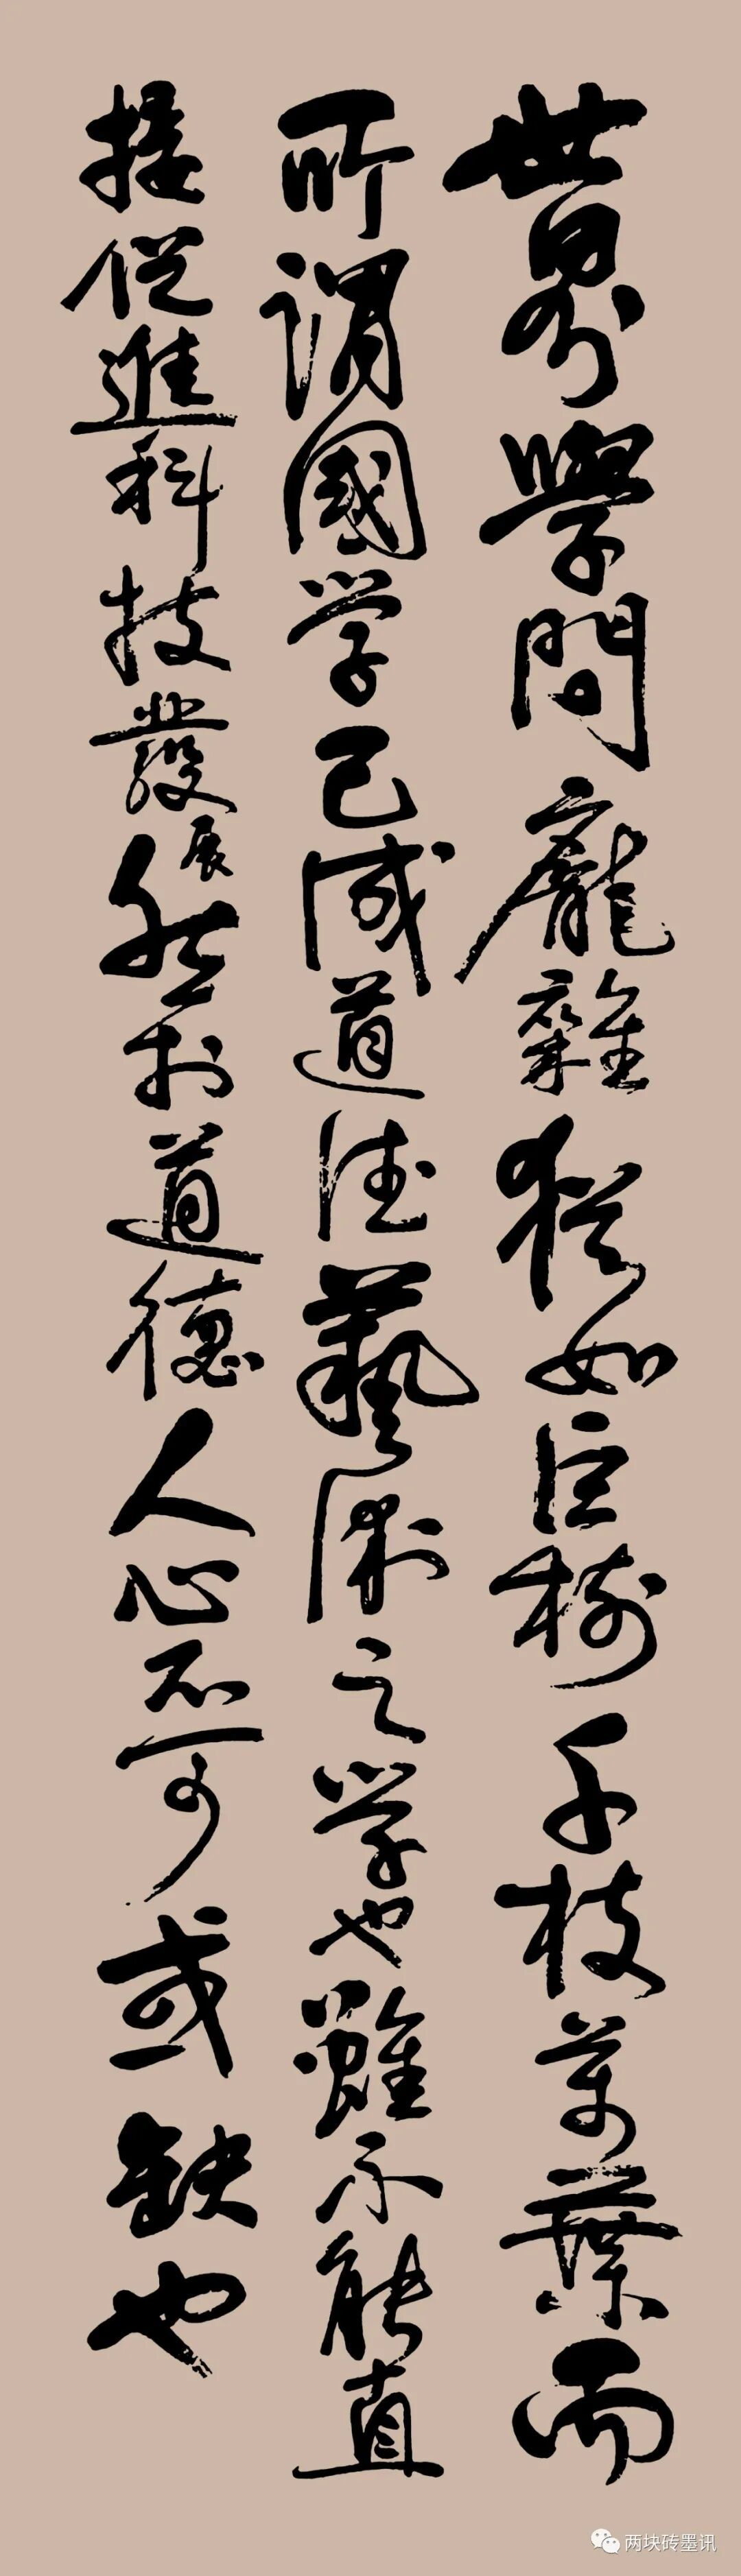 世界學問龐雜猶如巨樹千枝萬葉而
所謂國学已成道德藝術之学也雖不能直
接促進科技發展然於道德人心不可或缺也
两块砖墨讯